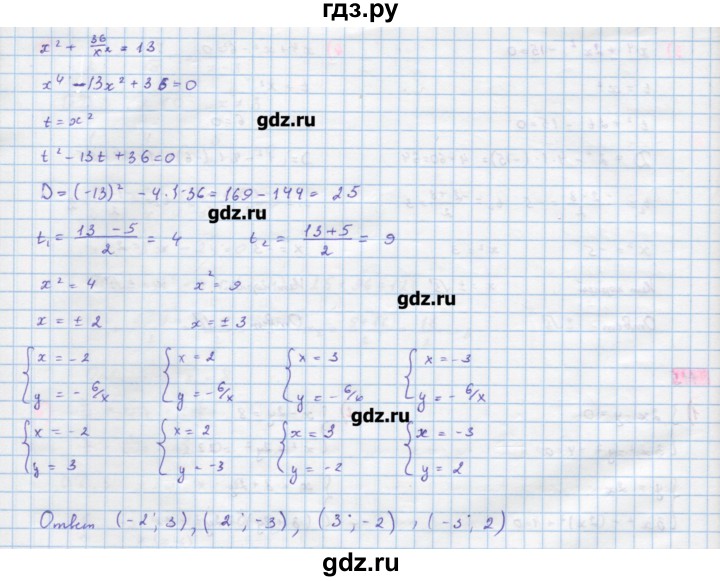 гдз.ру
x² + 36/x² = 13
x⁴ - 13x² + 36 = 0
t = x²
gdz.ru
t² - 13t + 36 = 0
D = (-13)² - 4·1·36 = 169 - 144 = 25
gdz.ru
t₁ = (13 - 5)/2 = 4 t₂ = (13 + 5)/2 = 9
x² = 4 x² = 9
gdz.ru
x = ± 2 x = ± 3
{ x = -2 { x = 2 { x = 3 { x = -3
y = - 6/x y = - 6/x y = - 6/x y = - 6/x
gdz.ru
{ x = -2 { x = 2 { x = 3 { x = -3
y = 3 y = -3 y = -2 y = 2
Ответ (-2; 3), (2; -3), (3; -2), (-3; 2)
gdz.ru